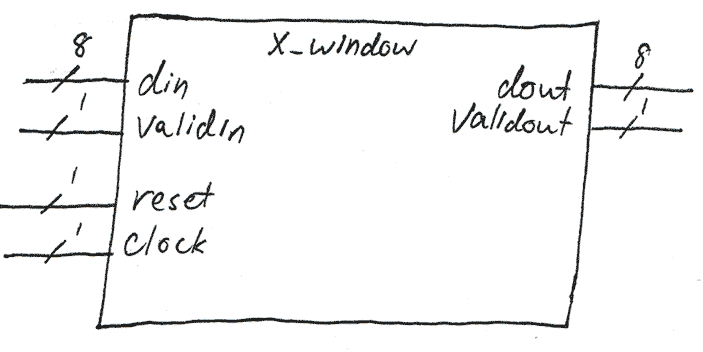 X_window
8
din
1
validIn
1
reset
1
clock
8
dout
1
Validout